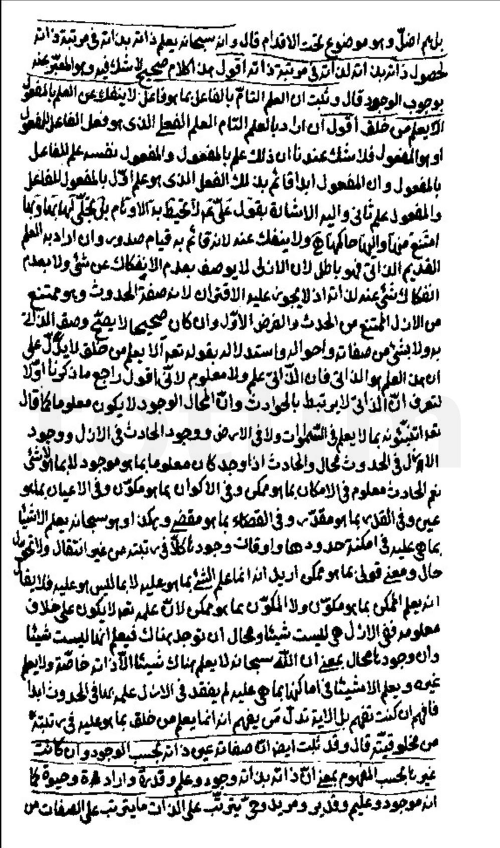 بل هم اضلّ وهو موضوع تحت الاقدام قال وانه سبحانه يعلم ذاته بذاته فى مرتبة ذاته
لحصول ذاته بذاته لذاته فى مرتبة ذاته اقول هذا كلام صحيح لا شك فيه وهو المعبّر عنه
بوجوب الوجود قال وثبت ان العلم التامّ بالفاعل بما هو فاعل لا ينفك عن العلم بالمفعول
الا يعلم من خلق اقول ان اراد بالعلم التام العلم الفعلى الذى هو فعل الفاعل للمفعول
او هو المفعول فلا شك عندنا ان ذلك علم بالمفعول والمفعول نفسه علم للفاعل
بالمفعول وان المفعول ابدا قائم بذلك الفعل الذى هو علم اوّل بالمفعول للفاعل
والمفعول علم ثانى واليه الاشارة بقول علىّ لا تحيط به الاوهام بل تجلّى لها بها وبها
امتنع منها واليها حاكمها ولا ينفك عنه لانه قائم به قيام صدور وان اراد به العلم
القديم الذاتى فهو باطل لان الازلى لا يوصف بعدم الانفكاك عن شئ ولا بعدم
انفكاك شئ عنه لذاته اذ لا يجوز عليه الاقتران لانه صفة الحدوث وهو ممتنع
من الازل الممتنع من الحدث والفرض الاوّل وان كان صحيحا لا يصحّ وصف الذات
به ولا بشئ من صفاته واحواله واستدلاله بقوله تعم الا يعلم من خلق لا يدلّ على
ان هذا العلم هو الذاتى فان الذاتى علم ولا معلوم لانّى اقول راجع ما ذكرنا اوّلا
لتعرف انّ الذاتى لا يرتبط بالحوادث وانّ المحال الوجود لا يكون معلوما كما قال
تعم اتنبّئونه بما لا يعلم فى السّموات ولا فى الارض ووجود الحادث فى الازل ووجود
الازل فى الحدوث محال والحادث اذا وجد كان معلوما بما هو موجود لا بما هو لا شئ
نعم الحادث معلوم فى الامكان بما هو ممكن وفى الاكوان بما هو مكوّن وفى الاعيان بما هو
عين وفى القدر بما هو مقدّر وفى القضاء بما هو مقضى وهكذا وهو سبحانه يعلم الاشيا
بما هى عليه فى امكنة حدودها واوقات وجودها كلّا فى رتبته من غير انتقال ولا تحويل
حال ومعنى قولى بما هو ممكن اريد انه انما علم الشئ بما هو عليه لا بما ليس هو عليه فلا يقال
انه يعلم الممكن بما هو مكوّن ولا المكوّن بما هو ممكن لانّ علمه تعم لا يكون على خلاف
معلومه ففى الازل هى ليست شيئا ومحال ان توجد هناك فيعلم انها ليست شيئا
وان وجودها محال بمعنى ان اللّه سبحانه لا يعلم هناك شيئا الّا ذاته خاصّة ولا يعلم
غيره ويعلم الاشيئا فى اماكنها بما هى عليه لم يفقد فى الازل علمه بها فى الحدوث ابدا
فافهم ان كنت تفهم بل الاية تدل من يفهم انه انما يعلم من خلق بما هو عليه فى رتبته
من مخلوقيّته قال وقد ثبت ايضا انّ صفاته عين ذاته بحسب الوجود وان كانت
غيرها بحسب المفهوم بمعنى انّ ذاته بذاته وجود وعلم وقدرة وارادة وحيوة كما
انه موجود وعليم وقدير ومريد وحىّ يترتّب على الذات ما يترتب على الصفات من